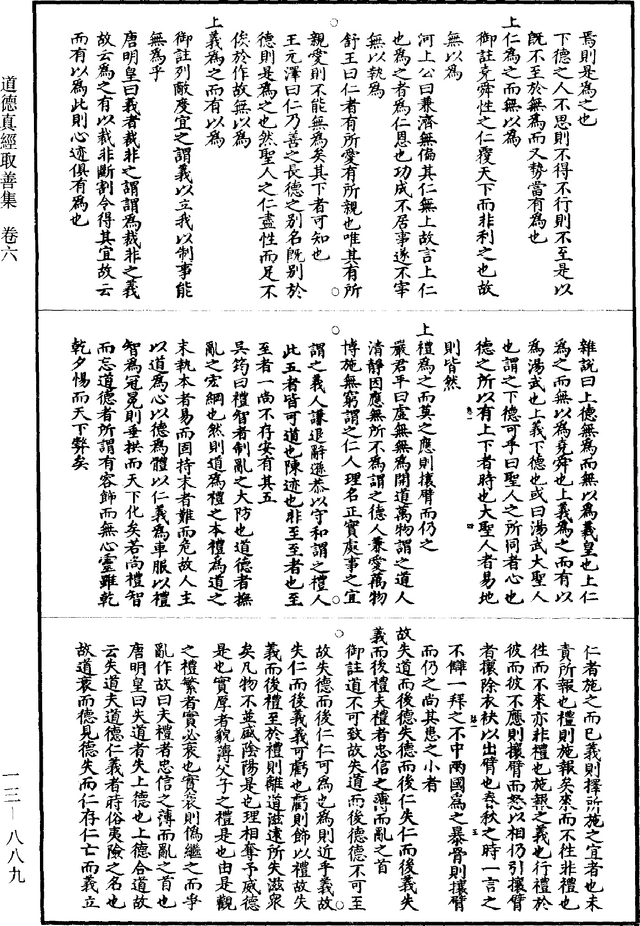 焉則是為之也
下德之人不思則不得不行則不至是以
既不至於無為而又勢當有為也
上仁為之而無以為
御註堯舜性之仁覆天下而非利之也故
無以為
河上公曰兼濟無倫其仁無上故言上仁
也為之者為仁恩也功成不居事遂不宰
無以執為
舒王曰仁者有所愛有所親也唯其有所
親愛則不能無為矣其下者可知也
王元澤曰仁乃善之長德之別名既別於
德則是為之也然聖人之仁盡性而足不
俟於作故無以為
上義為之而有以為
御註列敵度宜之謂義以立我以制事能
無為乎
唐明皇曰義者裁非之謂謂為裁非之義
故云為之有以裁非斷割令得其宜故云
而有以為此則心迹俱有為也
雜說曰上德無為而無以為義皇也上仁
為之而無以為堯舜也上義為之而有以
為湯武也上義下德也或曰湯武大聖人
也謂之下德可乎曰聖人之所同者心也
德之所以有上下者時也大聖人者易地
則皆然
上禮為之而莫之應則攘臂而仍之
嚴君平曰虛無無為開道萬物謂之道人
清靜因應無所不為謂之德人兼愛萬物
博施無窮謂之仁人理名正實處事之宜
謂之義人謙退辭遜恭以守和謂之禮人
此五者皆可道也陳迹也非至至者也至
至者一尚不存安有其五
吳筠曰禮智者制亂之大防也道德者撫
亂之宏綱也然則道為禮之本禮為道之
末執本者易而固持末者難而危故人主
以道為心以德為體以仁義為車服以禮
智為冠冕則垂拱而天下化矣若尚禮智
而忘道德者所謂有容飾而無心靈雖乾
乾夕惕而天下弊矣
仁者施之而已義則擇所施之宜者也未
責所報也禮則施報矣來而不往非禮也
往而不來亦非禮也施報之義也行禮於
彼而彼不應則攘臂而怒以相仍引攘臂
者攘除衣袂以出臂也春秋之時一言之
不讎一拜之不中兩國為之暴骨則攘臂
而仍之尚其患之小者
故失道而後德失德而後仁失仁而後義失
義而後禮夫禮者忠信之薄而亂之首
御註道不可致故失道而後德德不可至
故失德而後仁仁可為也為則近乎義故
失仁而後義義可虧也虧則飾以禮故失
義而後禮至於禮則離道滋遠所失滋眾
矣凡物不並盛陰陽是也理相奪予威德
是也實厚者貌薄父子之禮是也由是觀
之禮繁者實必衰也實衰則偽繼之而乎
亂作故曰夫禮者忠信之薄而亂之首也
唐明皇曰失道者失上德也上德合道故
云失道夫道德仁義者時俗夷險之名也
故道衰而德見德失而仁存仁亡而義立
道德真經取善集 卷六
一三—八八九